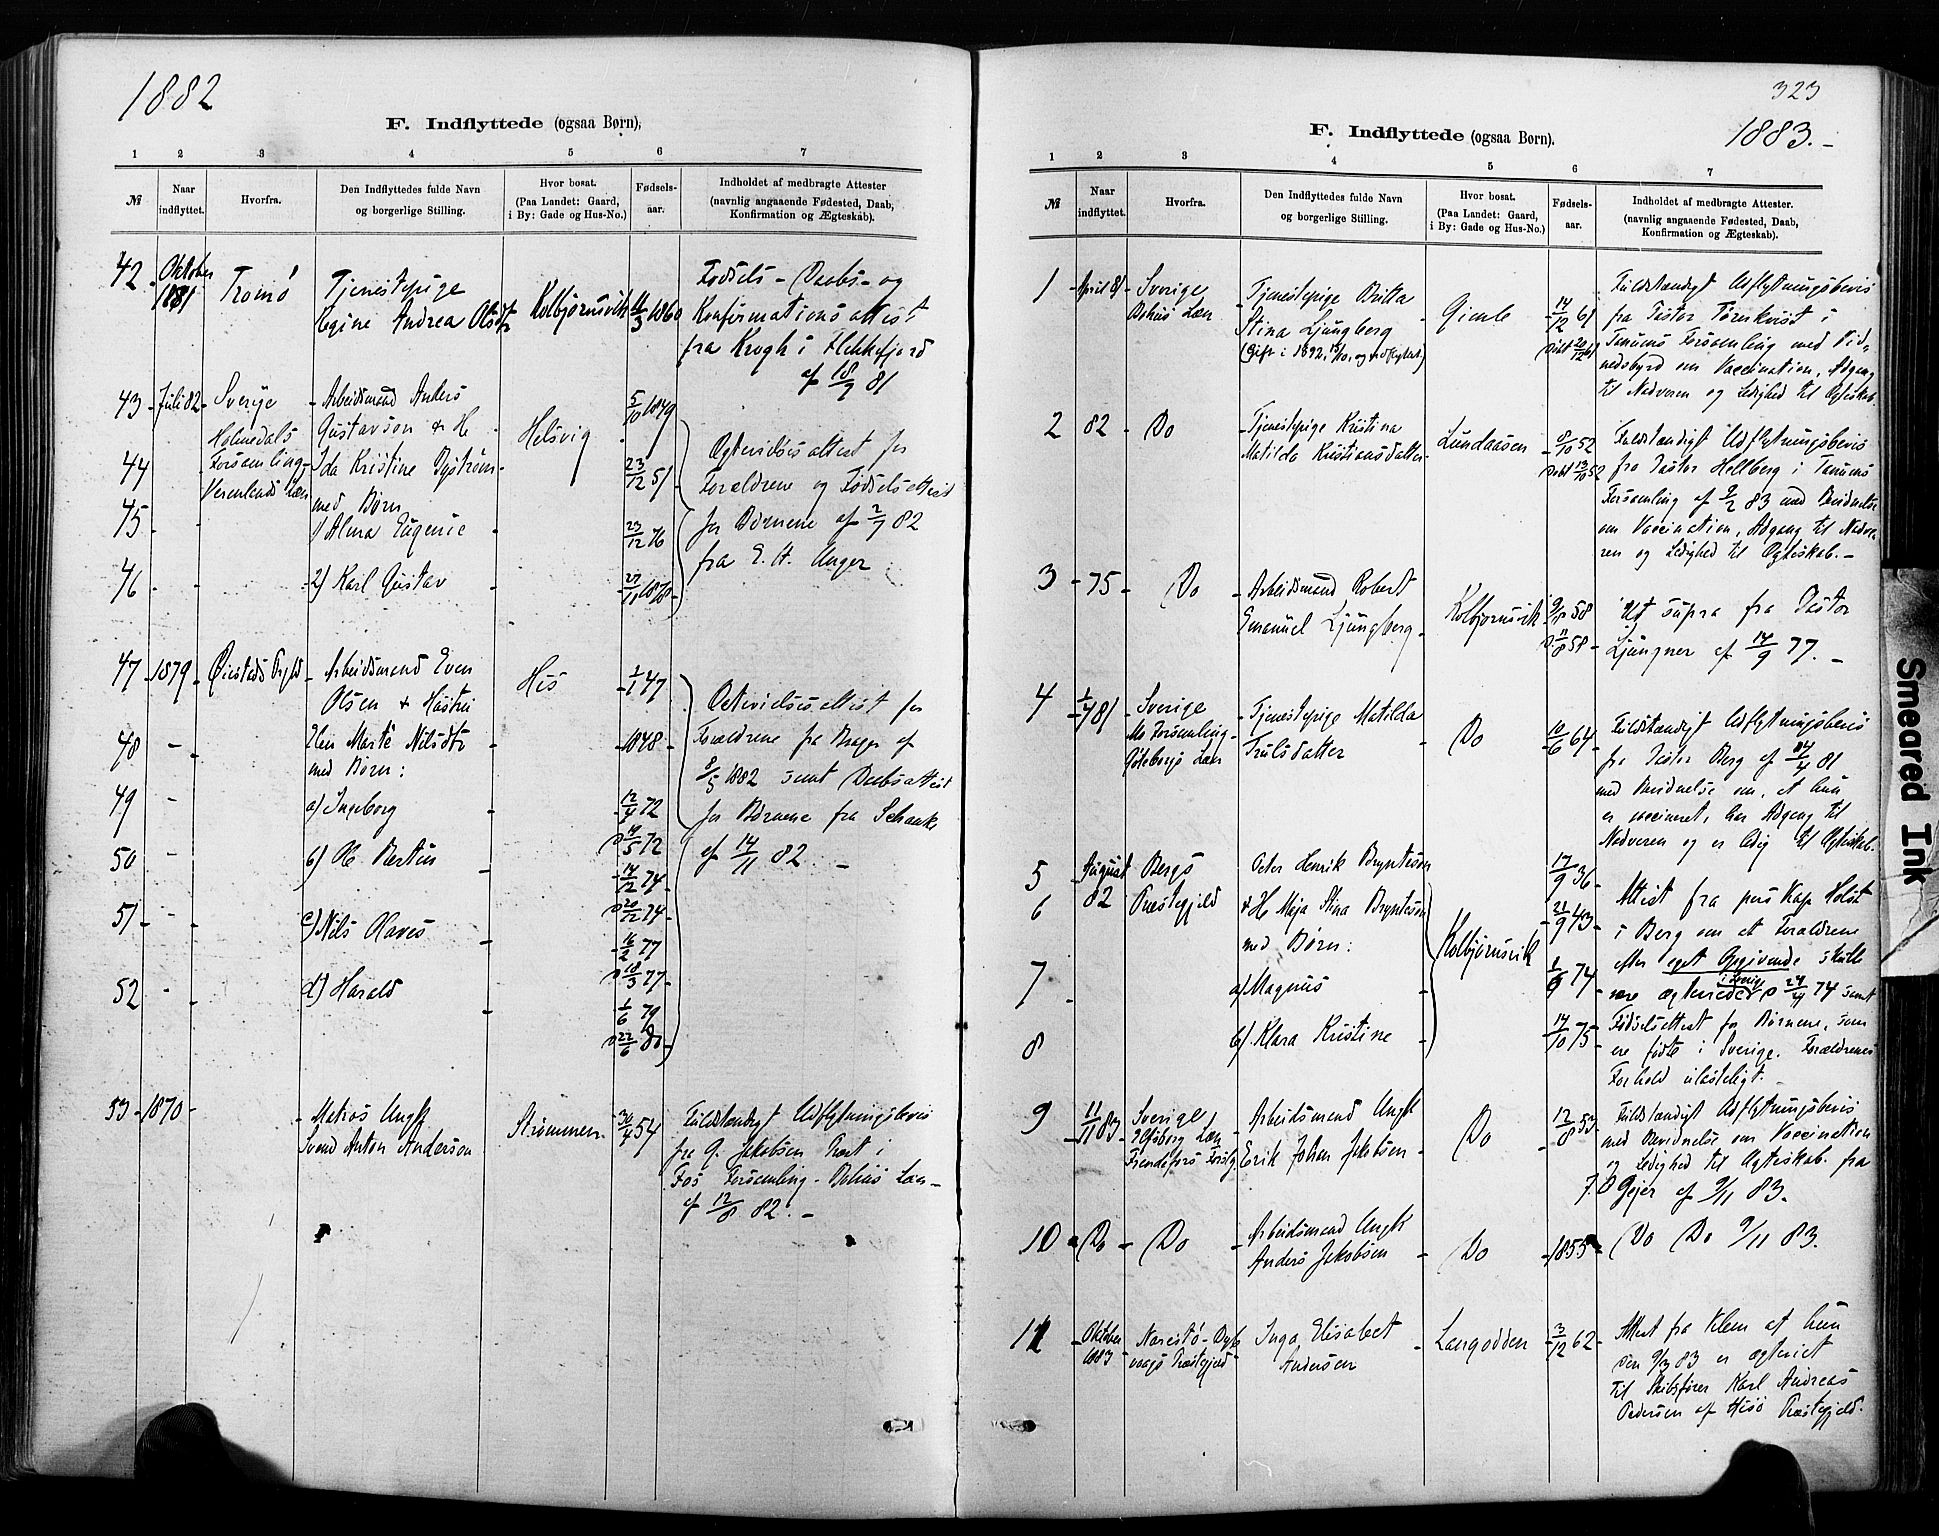 1882
F. Indflyttede (ogsaa Børn).
1 2 3 4 5 6 7
№
Naar indflyttet.
Hvorfra.
Den Indflyttedes fulde Navn
og borgerlige Stilling.
Hvor bosat.
(Paa Landet: Gaard,
i By: Gade og Hus-No.)
Fødsels-
aar.
Indholdet af medbragte Attester
(navnlig angaaende Fødested, Daab,
Konfirmation og Ægteskab).
42 Oktober 1881 Tromö
Tjenestepige
Regine Andrea Olsdtr
Kolbjørnsvik
11/3 1860
Fødsels- Daabs- og
Konfirmationsattest
fra Krogh i Flekkefjord
af 18/9 81
43 Juli 82 Sverige
Holmedals
Forsamling
Vermlands Læn
Arbeidsmand Anders
Gustavson & H
Helsvig
5/10 1849
44 Ida Kristine Byström
med Børn
23/12 51
45 1) Alma Eugenie
23/12 76
46 2) Karl Gustav
27/11 1878
Ægtevielsesattest for
Forældrene og Fødselsattest
for Børnene af 2/7 82
fra E. H. Unger
47 1879 Øiestads Prgld
Arbeidsmand Even
Olsen & Hustru
His
1/1 47
48 Elen Marte Nilsdtr
med Børn:
1848
49 a) Ingeborg
12/4 72
D 14/5 72
50 b) Ole Bertin
14/12 74
D 20/12 74
51 c) Nils Olaves
16/2 77
D 18/3 77
52 d) Harald
1/6 79
D 22/6 80
Ægtevielsesattest for
Forældrene fra Bugge af
8/5 1882 samt Daabsattest
for Børnene fra Schanke
af 14/11 82
53 1870
Matros Ungk
Svend Anton Anderson
Strømmen
30/4 54
Fuldstændigt Udflytningsbevis
fra G. Jakobsen Præst i
Fos Forsamling. Bohus Læn
af 12/8 82.
323
1883.
F. Indflyttede (ogsaa Børn).
1 2 3 4 5 6 7
№
Naar indflyttet.
Hvorfra.
Den Indflyttedes fulde Navn
og borgerlige Stilling.
Hvor bosat.
(Paa Landet: Gaard,
i By: Gade og Hus-No.)
Fødsels-
aar.
Indholdet af medbragte Attester.
(navnlig angaaende Fødested, Daab,
Konfirmation og Ægteskab).
1 April 81 Sverige
Bohus Læn
Tjenestepige Britta
Stina Ljungberg
(Gift i 1892, 15/10, og udflyttet)
Gimle
14/12 61
Døbt 20/12 61
Fuldstændigt Udflytningsbevis
fra Pastor Törnkvist i
Tanums Forsamling med Vid-
nesbyrd om Vaccination, Adgang
til Nadveren og Ledighed til Ægteskab.
2 82 Do
Tjenestepige Kristina
Matilda Kristiansdatter
Lundaasen
8/10 52
Døbt 13/10 52
Fuldstændigt Udflytningsbevis
fra Pastor Hellberg i Tanums
Forsamling af 9/2 83 med Vidnelse
om Vaccination, Adgang til Nadve-
ren og Ledighed til Ægteskab.
3 75 Do
Arbeidsmand Robert
Emanuel Ljungberg
Kolbjørnsvik
9/8 58
D. 11/8 58
Ut supra fra Pastor
Ljungner af 14/9 77.
4 1/4 81 Sverige
Mo Forsamling
Göteborgs Læn
Tjenestepige Matilda
Trulsdatter
Do
10/6 64
Fuldstændigt Udflytningsbevis
fra Pastor Berg af 24/4 81
med Vidnelse om, at hun
er vaccineret, har Adgang til
Nadveren og er ledig til Ægteskab.
5 August 82 Bergs
Præstegjeld
Peter Henrik Brynteson
17/9 36
6 & H. Maja Stina Brynteson
med Børn:
Kolbjørnsvik
21/9 43
7 a) Magnus
1/8 74
8 b) Klara Kristine
14/10 75
Attest fra pers Kap Holst
i Berg om at Forældrene
efter eget Opgivende skulle
være ægteviede i Sverige 24/4 74 samt
Fødselsattest for Børnene, som
ere fødte i Sverige. Forældrenes
Forhold ulasteligt.
9 11/11 83 Sverige
Elfsborg Læn
Frendefors Forslg
Arbeidsmand Ungk
Erik Johan Jakobsen
Do
12/8 53
Fuldstændigt Udflytningsbevis
med Vidnelse om Vaccination
og Ledighed til Ægteskab. fra
F. O Gejer af 9/11 83.
10 Do Do
Arbeidsmand Ungk
Anders Jakobsen
Do
1855
Do Do 9/11 83.
11 Oktober 1883
Narestö-Dyb
vaags Præstegjeld
Inga Elisabet
Andersen
Langodden
3/12 62
Attest fra Klem at hun
den 9/9 83 er ægteviet
til Skibsfører Karl Andreas
Pedersen af Hisö Præstegjeld.
Smeared Ink